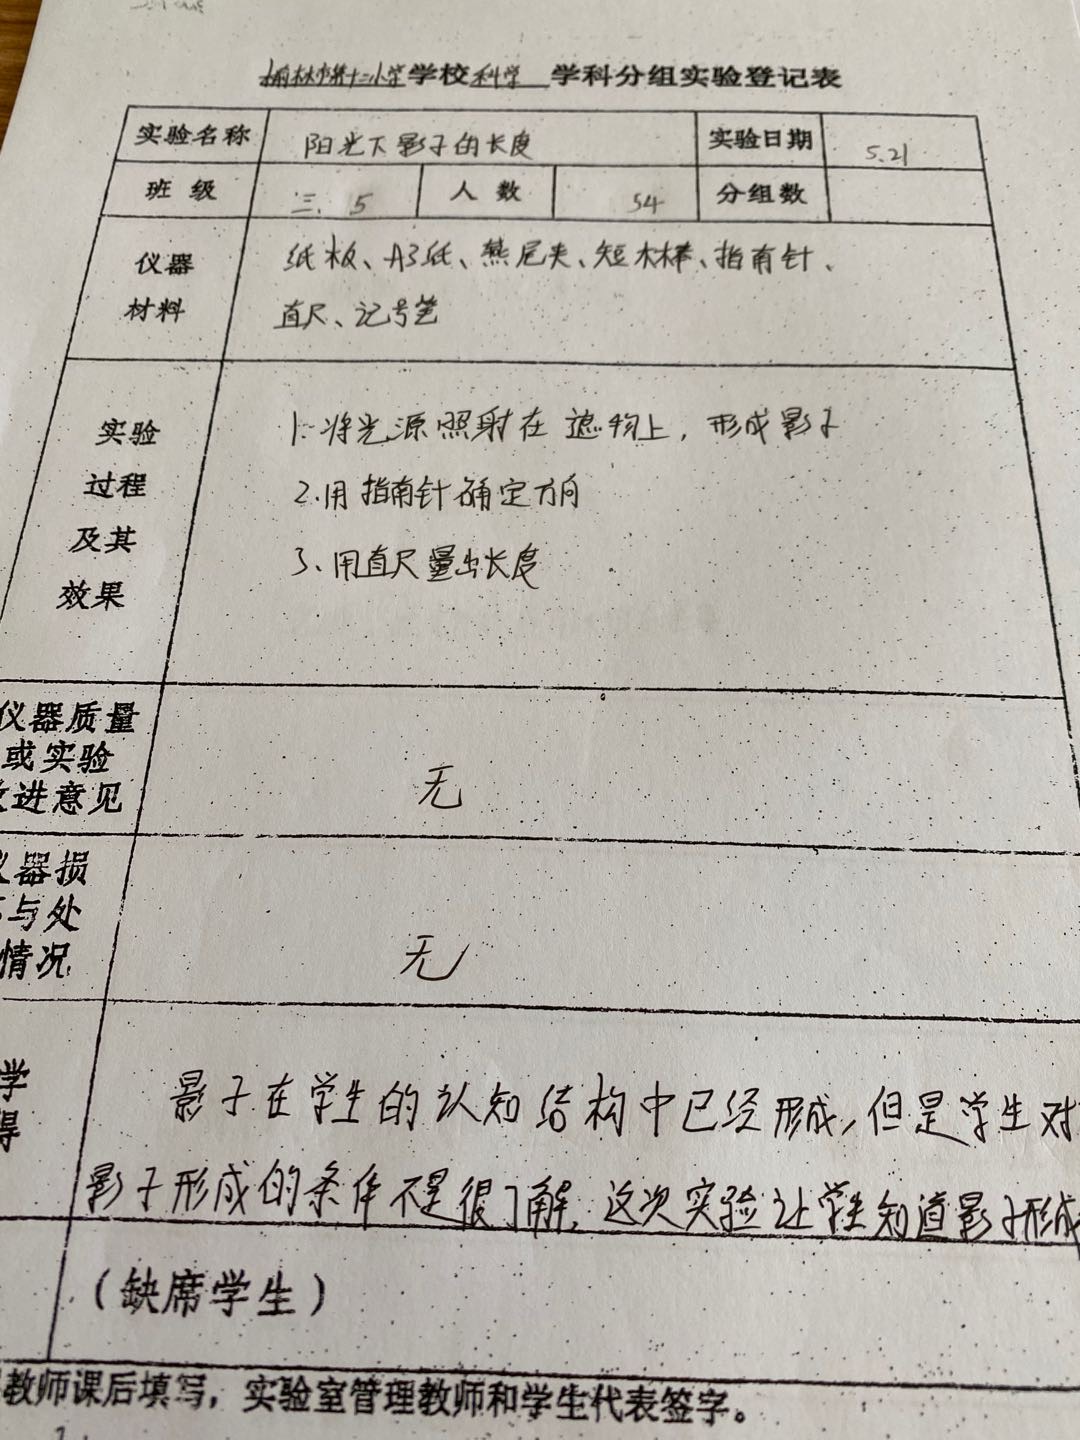 榆林市第十二小学学校科学 学科分组实验登记表
实验名称 阳光下影子的长度 实验日期 5.21
班 级 三.5 人 数 54 分组数
仪器 纸板、A3纸、燕尾夹、短木棒、指南针、
材料 直尺、记号笔
实验 1.将光源照射在遮物上，形成影子
过程 2.用指南针确定方向
及其 3、用直尺量出长度
效果
仪器质量
或实验 无
进意见
器损
与处 无
情况
学 影子在学生的认知结构中已经形成，但是学生对
得 影子形成的条件不是很了解，这次实验让学生知道影子形成
（缺席学生）
教师课后填写，实验室管理教师和学生代表签字。